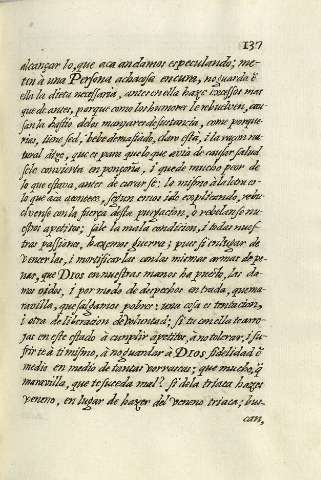 137
alcançar lo, que aca andamos especulando; me-
tin à una Persona achacosa en cura, no guarda ẽ
ella la dieta necessaria, antes en ella haze excessos mas
que de antes, porque como los humores se rebuelven, cau-
san la hastio delos manjares de sustancia, come porque-
rias, tiene sed, bebe demasiado, claro està, i la raçon na-
tural dize, que es para que lo que avia de causar salud
se lo convierta en ponçoña, i quede mucho peor de
lo que estava, antes de curarse: lo mismo à la letra es
lo que aca acontece, segun emos ido explicando, rebu-
elvense con la fuerça desta purgacion, ò rebelanse nu-
estros apetitos; sale la mala condicion, i todas nues-
tras passiones, hazemos guerra; pues si en lugar de
vencerlas, i mortificarlas con las mismas armas de pe-
nas, que Dios en nuestras manos ha puesto, las da-
mos oidos, i por medo de despechos entrada, que ma-
ravilla, que salgamos pobres: una cosa es tentacion,
i otra deliberacion de voluntad; si tu con ella te arro-
jas en este estado à cumplir apetitos, à no tolerar, i su-
frirte à ti mismo, à no guardar à Dios fidelidad ẽ
medio en medio de tantas borrascas; que mucho, q̃
maravilla, que te suceda mal? si dela triaca hazes
veneno, en lugar de hazer del veneno triaca; bus-
can,